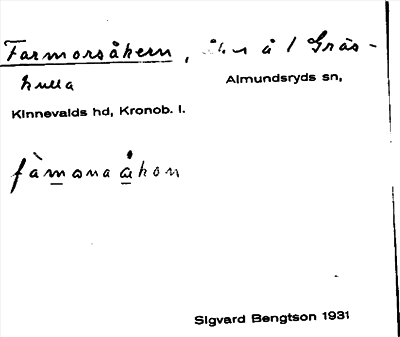 Farmorsåkern, åker å 1 Gräs-
hulta Almundsryds sn,
Kinnevalds hd, Kronob. l.
fàmoraåkon
Sigvard Bengtson 1931